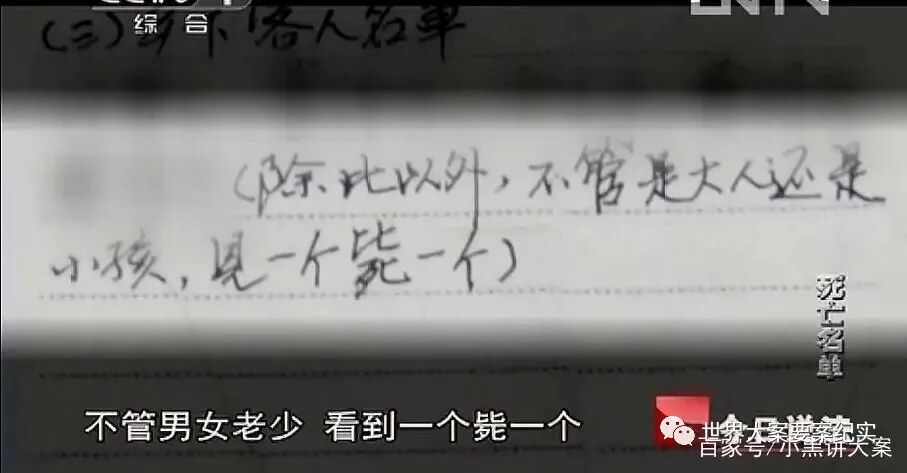 综合
(三)乡下客人名单
(除此以外,不管是大人还是
小孩,見一个毙一个)
死亡名单
不管男女老少 看到一个毙一个
今日说法
世界大案要案纪实
百家号/小黑讲大案